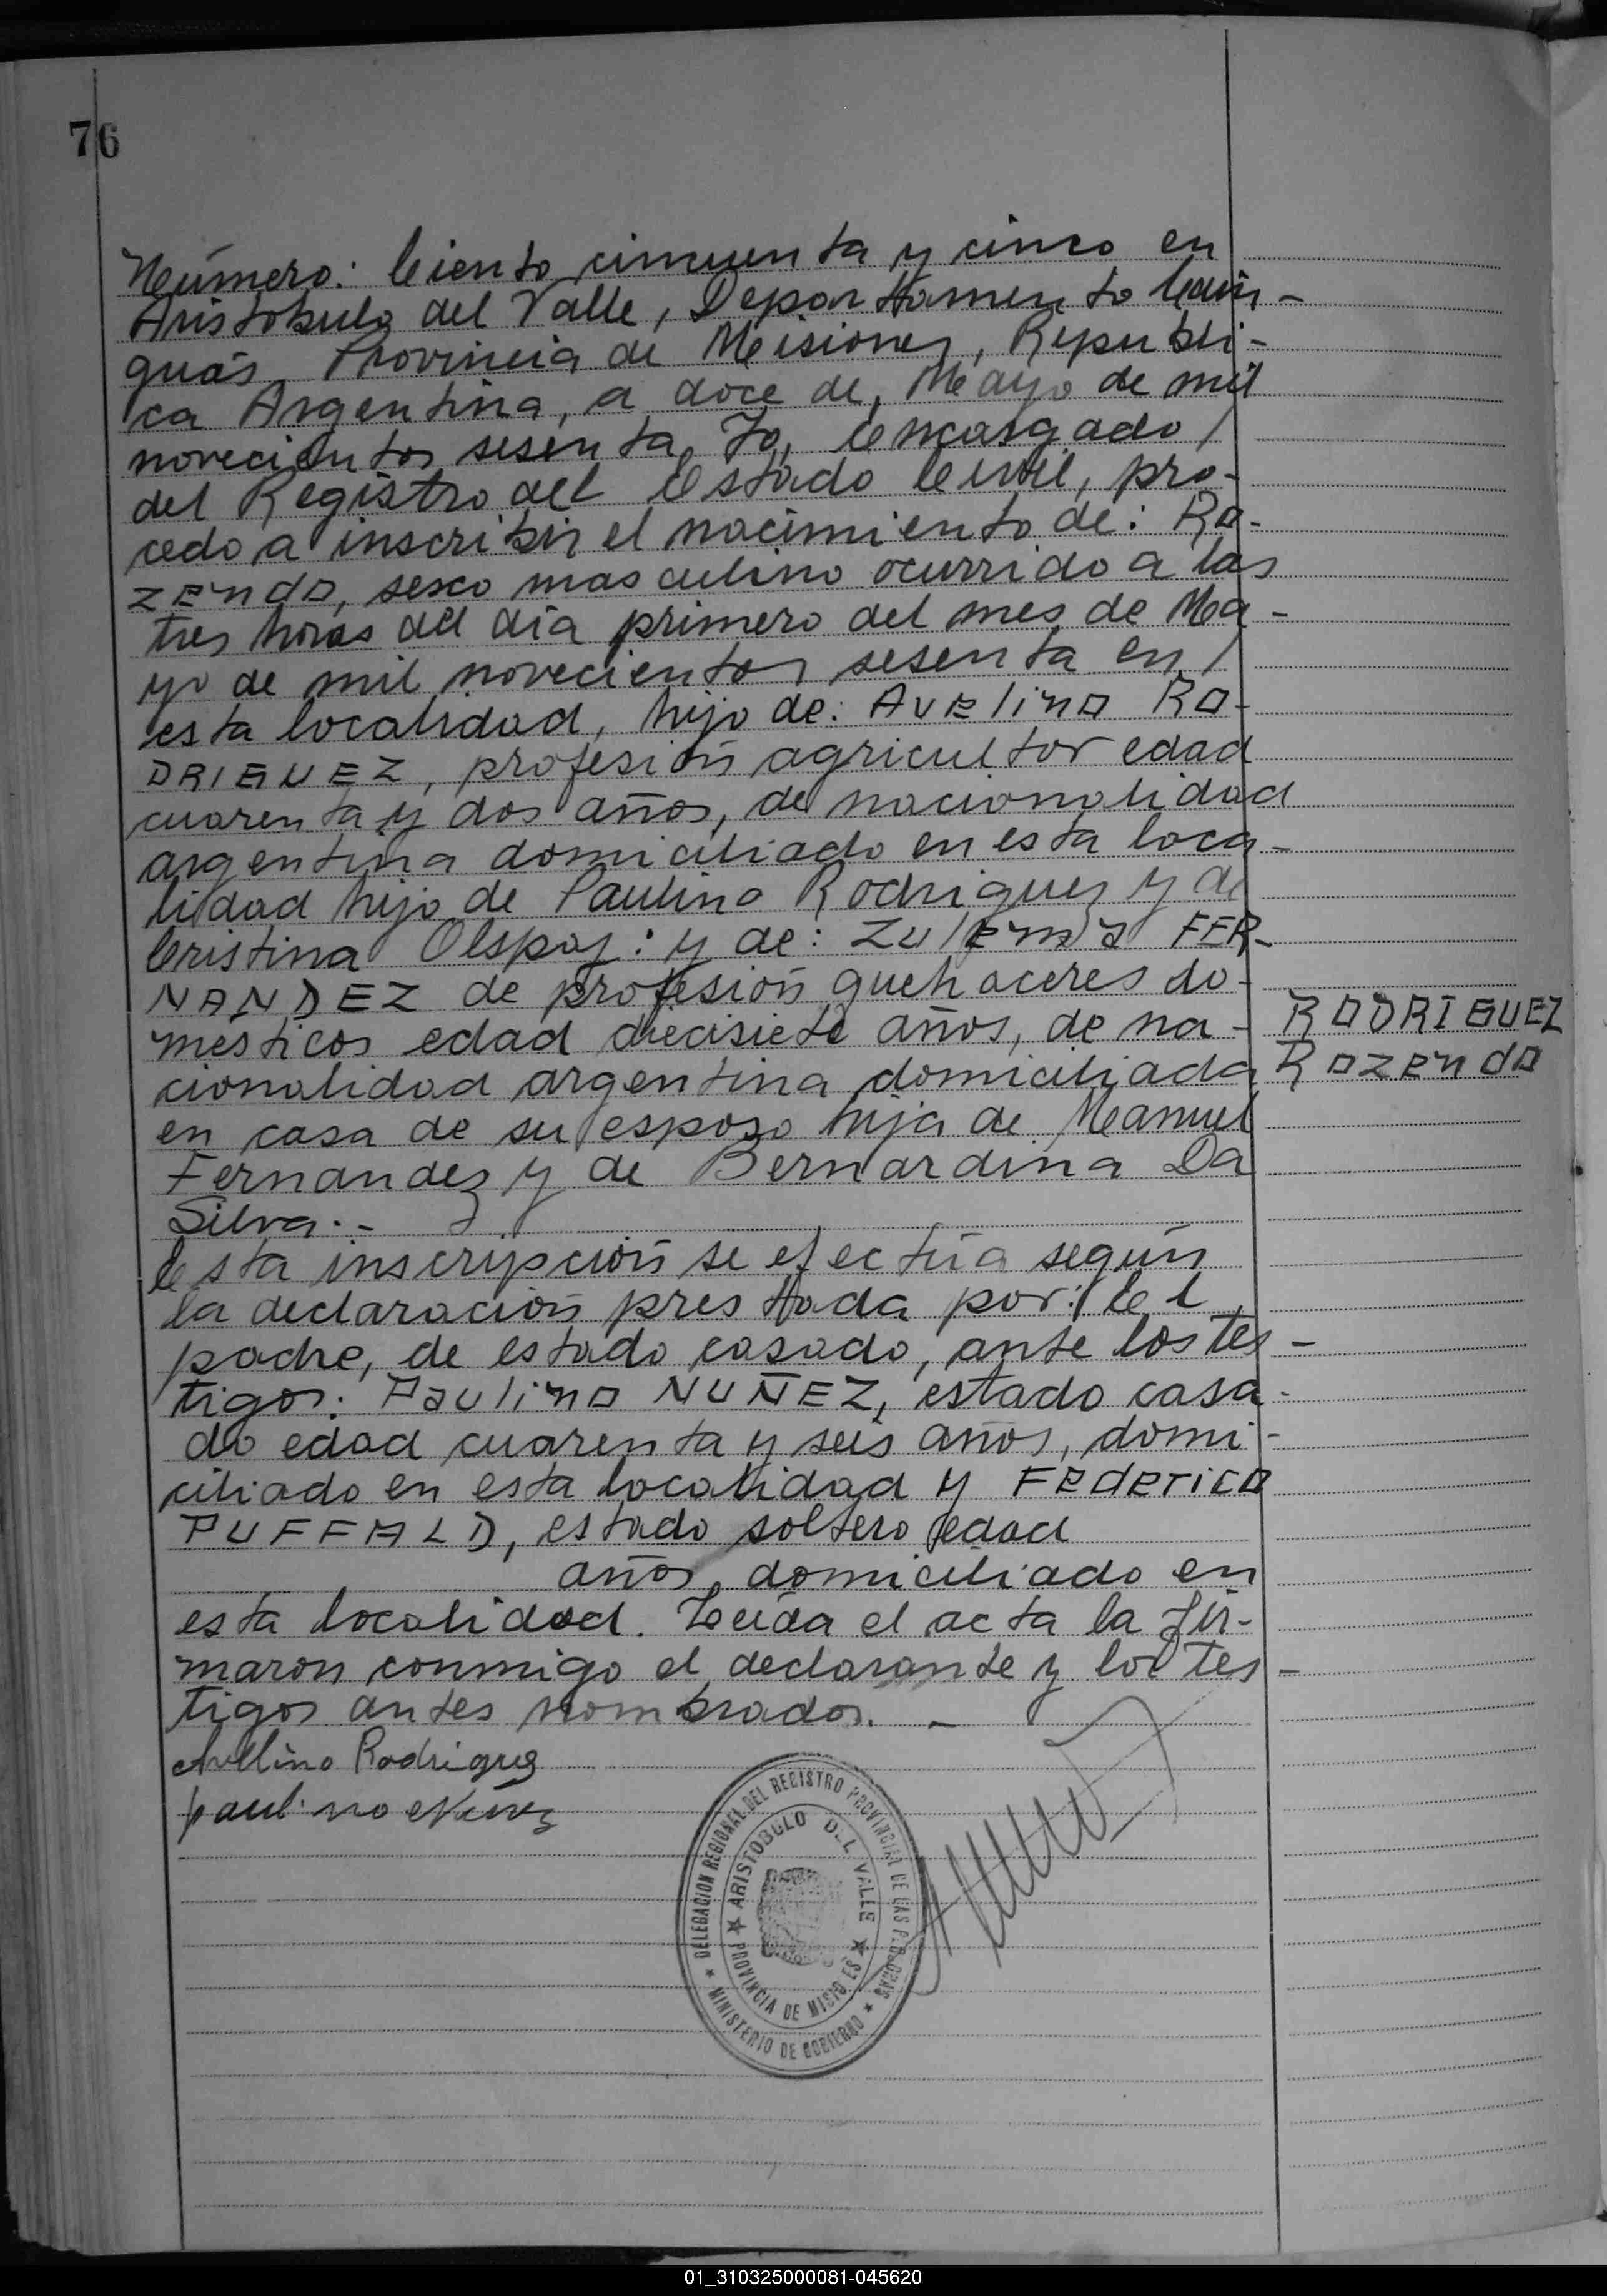 76
Número: Ciento cincuenta y cinco en
Aristobulo del Valle, Departamento Cain-
guás Provincia de Misiones, Republi-
ca Argentina, a doce de Mayo de mil
novecientos sesenta, Yo, Encargado
del Registro del Estado Civil, pro-
cedo a inscribir el nacimiento de: Ro-
zendo, sexo masculino ocurrido a las
tres horas del día primero del mes de Ma-
yo de mil novecientos sesenta en
esta localidad, hijo de: Avelino RO-
DRIGUEZ, profesión agricultor edad
cuarenta y dos años, de nacionalidad
argentina domiciliado en esta loca-
lidad hijo de Paulino Rodriguez y de
Cristina : y de: Zulema FER-
NANDEZ de profesión quehaceres do-
mésticos edad diecisiete años, de na-
cionalidad argentina domiciliada
en casa de su esposo hija de Manuel
Fernandez y de Bernardina Da
Silva.-
RODRIGUEZ
Rozendo
Esta inscripción se efectúa según
la declaración prestada por: El
padre, de estado casado, ante los tes-
tigos: Paulino NUÑEZ, estado casa-
do edad cuarenta y seis años, domi-
ciliado en esta localidad y Federico
PUFFALD, estado soltero edad
años, domiciliado en
esta localidad. Leída el acta la fir-
maron conmigo el declarante y los tes-
tigos antes nombrados. -
Avelino Rodriguez
paulino Nuñez
DELEGACION REGIONAL DEL REGISTRO PROVINCIAL DE LAS PERSONAS
ARISTOBULO DEL VALLE
PROVINCIA DE MISIONES
MINISTERIO DE GOBIERNO
01_310325000081-045620